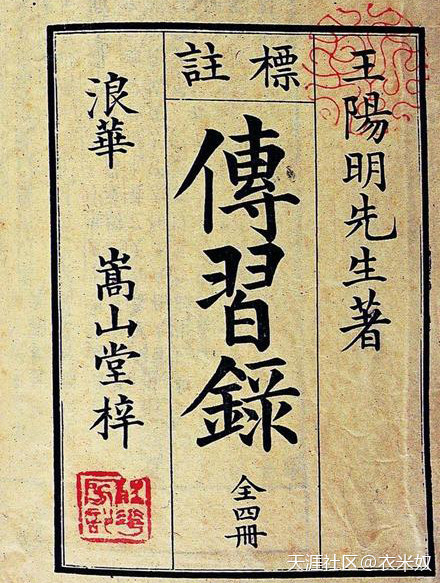 王陽明先生著
標註
傳習錄
全四冊
浪華 嵩山堂梓
天涯社区@衣米奴